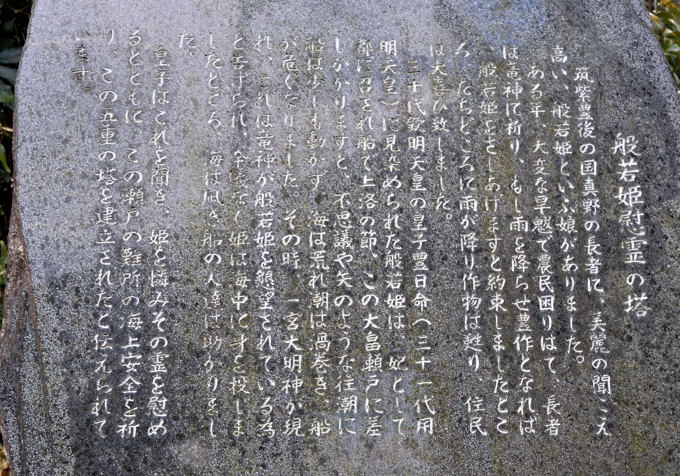 般若姫慰霊の塔
筑紫豊後の国真野の長者に、美麗の聞こえ
高い、般若姫といふ娘がありました。
ある年、大変な旱魃で農民困りはて、長者
は竜神に祈り、もし雨を降らせ豊作となれば
般若姫をさしあげますと約束しましたとこ
ろ、たちどころに雨が降り作物は甦り、住民
は大喜び致しました。
三十代欽明天皇の皇子豊日命（三十一代用
明天皇）に見染められた般若姫は、妃として
都に召され船で上洛の節、この大畠瀬戸に差
しかかりますと、不思議や矢のような往潮に
船は少しも動かず、海は荒れ潮は渦巻き、船
が危くなりました。その時、一宮大明神が現
れ、これは竜神が般若姫を懇望されている為
と告げられ、余儀なく姫は海中に身を投じま
したところ、海は凪ぎ船の人達は助かりまし
た。
皇子はこれを聞き、姫を憐みその霊を慰め
るとともに、この瀬戸の難所の海上安全を祈
り、この五重の塔を建立されたと伝えられて
います。